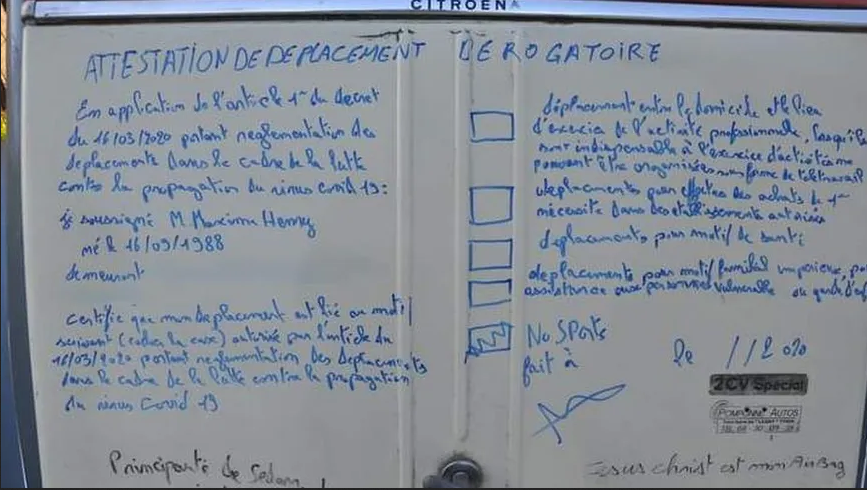 CITROËN
ATTESTATION DE DEPLACEMENT DEROGATOIRE
En application de l'article 1er du decret
du 16/03/2020 portant reglementation des
deplacements dans le cadre de la lutte
contre la propagation du virus covid 19 :
je soussigné M Maxime Henry
né le 16/09/1988
demeurant
certifie que mon deplacement est lié au motif
suivant (cocher la case) autorisé par l'article du
16/03/2020 portant reglementation des deplacements
dans le cadre de la lutte contre la propagation
du virus Covid 19
Principauté de Sedan
déplacement entre le domicile et le lieu
d'exercice de l'activité professionnelle, lorsqu'ils
sont indispensable à l'exercice d'activités ne
pouvant être organisées sous forme de télétravail
deplacements pour effectuer des achats de 1ere
nécessité dans des établissements autorisés
deplacements pour motif de santé
deplacements pour motif familial imperieux, pour
assistance aux personnes vulnerable ou garde d'enf
No SPORTS
fait à le / / 2020
2CV Spécial
POMPONNE AUTOS
Jesus christ est mon AirBag